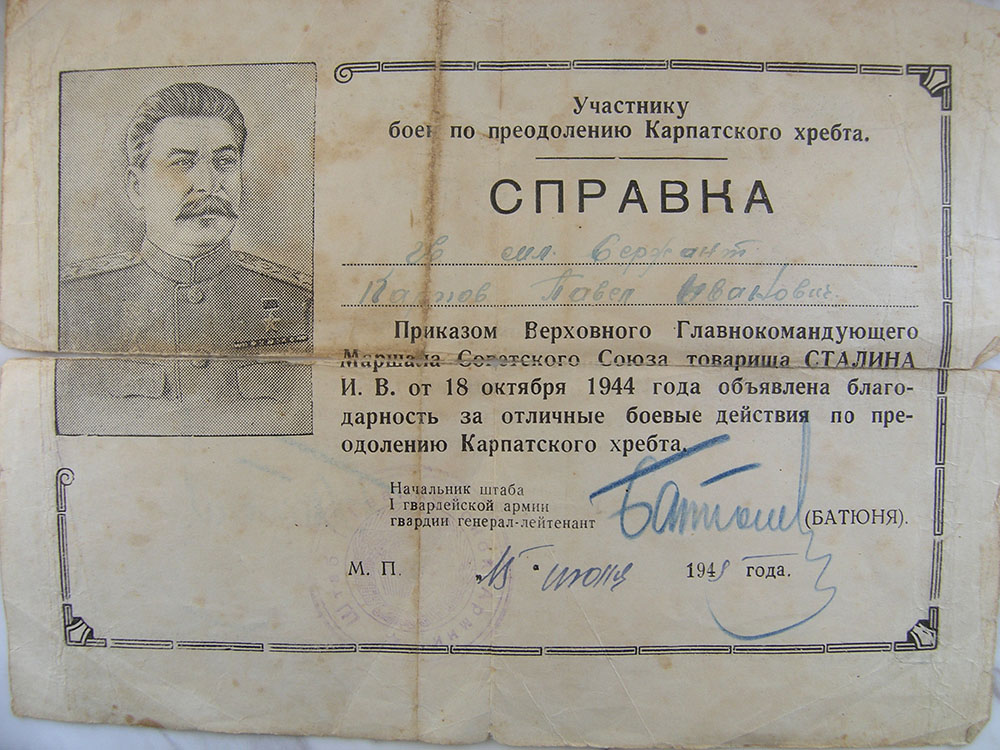 Участнику
боев по преодолению Карпатского хребта.
СПРАВКА
гв мл. Сержант
Павел Иванович
Приказом Верховного Главнокомандующего
Маршала Советского Союза товарища СТАЛИНА
И. В. от 18 октября 1944 года объявлена благо-
дарность за отличные боевые действия по пре-
одолению Карпатского хребта.
Начальник штаба
I гвардейской армии
гвардии генерал-лейтенант
(БАТЮНЯ).
М. П. „15" июня 194 года.